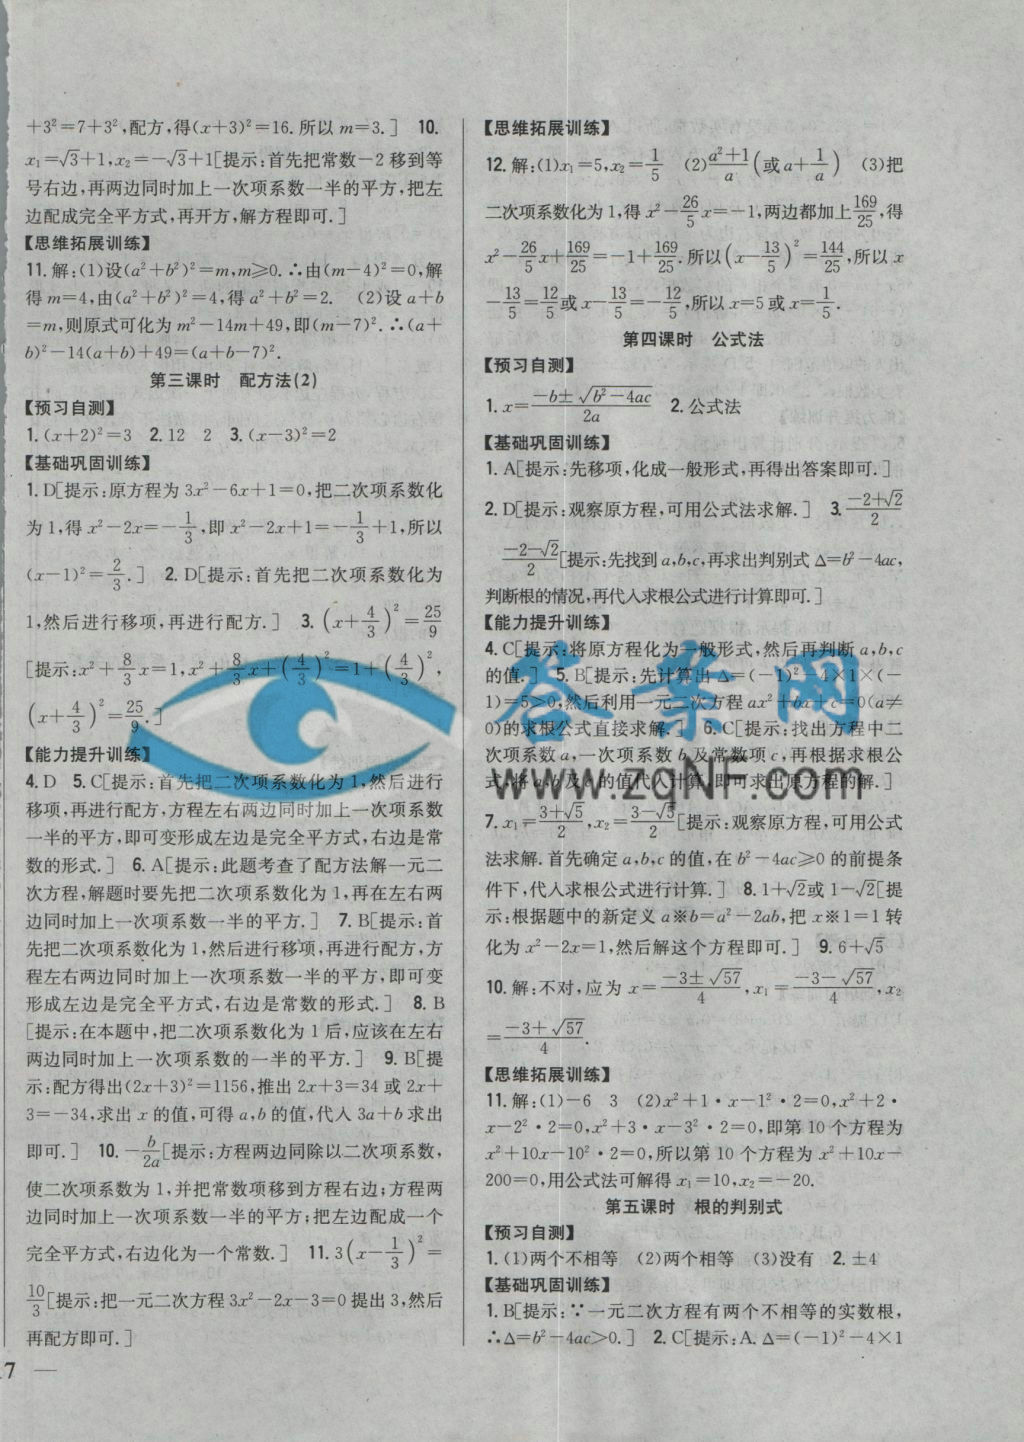 +3²=7+3²,配方,得(x+3)²=16.所以m=3.] 10.
x₁=√3+1,x₂=-√3+1[提示:首先把常数-2移到等
号右边,再两边同时加上一次项系数一半的平方,把左
边配成完全平方式,再开方,解方程即可.]
【思维拓展训练】
11.解:(1)设(a²+b²)²=m,m≥0.∴由(m-4)²=0,解
得m=4,由(a²+b²)²=4,得a²+b²=2. (2)设a+b
=m,则原式可化为m²-14m+49,即(m-7)².∴(a+
b)²-14(a+b)+49=(a+b-7)².
第三课时 配方法(2)
【预习自测】
1.(x+2)²=3 2.12 2 3.(x-3)²=2
【基础巩固训练】
1.D[提示:原方程为3x²-6x+1=0,把二次项系数化
为1,得x²-2x=-1/3,即x²-2x+1=-1/3+1,所以
(x-1)²=2/3.] 2.D[提示:首先把二次项系数化为
1,然后进行移项,再进行配方.] 3.(x+4/3)²=25/9
[提示:x²+8/3x=1,x²+8/3x+(4/3)²=1+(4/3)²,
(x+4/3)²=25/9.]
【能力提升训练】
4.D 5.C[提示:首先把二次项系数化为1,然后进行
移项,再进行配方,方程左右两边同时加上一次项系数
一半的平方,即可变形成左边是完全平方式,右边是常
数的形式.] 6.A[提示:此题考查了配方法解一元二
次方程,解题时要先把二次项系数化为1,再在左右两
边同时加上一次项系数一半的平方.] 7.B[提示:首
先把二次项系数化为1,然后进行移项,再进行配方,方
程左右两边同时加上一次项系数一半的平方,即可变
形成左边是完全平方式,右边是常数的形式.] 8.B
[提示:在本题中,把二次项系数化为1后,应该在左右
两边同时加上一次项系数的一半的平方.] 9.B[提
示:配方得出(2x+3)²=1156,推出2x+3=34或2x+
3=-34,求出x的值,可得a,b的值,代入3a+b求出
即可.] 10.-b/2a[提示:方程两边同除以二次项系数,
使二次项系数为1,并把常数项移到方程右边;方程两
边同时加上一次项系数一半的平方;把左边配成一个
完全平方式,右边化为一个常数.] 11.3(x-1/3)²=
10/3[提示:把一元二次方程3x²-2x-3=0提出3,然后
再配方即可.]
17 —
【思维拓展训练】
12.解:(1)x₁=5,x₂=1/5 (2)(a²+1)/a(或a+1/a) (3)把
二次项系数化为1,得x²-26/5x=-1,两边都加上169/25,得
x²-26/5x+169/25=-1+169/25.所以(x-13/5)²=144/25,所以x
-13/5=12/5或x-13/5=-12/5,所以x=5或x=1/5.
第四课时 公式法
【预习自测】
1.x=(-b±√(b²-4ac))/2a 2.公式法
【基础巩固训练】
1.A[提示:先移项,化成一般形式,再得出答案即可.]
2.D[提示:观察原方程,可用公式法求解.] 3.(-2+√2)/2
(-2-√2)/2[提示:先找到a,b,c,再求出判别式Δ=b²-4ac,
判断根的情况,再代入求根公式进行计算即可.]
【能力提升训练】
4.C[提示:将原方程化为一般形式,然后再判断a,b,c
的值.] 5.B[提示:先计算出Δ=(-1)²-4×1×(-
1)=5>0,然后利用一元二次方程ax²+bx+c=0(a≠
0)的求根公式直接求解.] 6.C[提示:找出方程中二
次项系数a,一次项系数b及常数项c,再根据求根公
式,将a,b及c的值代入计算,即可求出原方程的解.]
7.x₁=(3+√5)/2,x₂=(3-√5)/2[提示:观察原方程,可用公式
法求解.首先确定a,b,c的值,在b²-4ac≥0的前提条
件下,代入求根公式进行计算.] 8.1+√2或1-√2[提
示:根据题中的新定义a※b=a²-2ab,把x※1=1转
化为x²-2x=1,然后解这个方程即可.] 9.6+√5
10.解:不对,应为x=(-3±√57)/4,x₁=(-3-√57)/4,x₂
=(-3+√57)/4.
【思维拓展训练】
11.解:(1)-6 3 (2)x²+1·x-1²·2=0,x²+2·
x-2²·2=0,x²+3·x-3²·2=0,即第10个方程为
x²+10x-10²·2=0,所以第10个方程为x²+10x-
200=0,用公式法可解得x₁=10,x₂=-20.
第五课时 根的判别式
【预习自测】
1.(1)两个不相等 (2)两个相等 (3)没有 2.±4
【基础巩固训练】
1.B[提示:∵一元二次方程有两个不相等的实数根,
∴Δ=b²-4ac>0.] 2.C[提示:A.Δ=(-1)²-4×1
答案网
www.zqNF.com